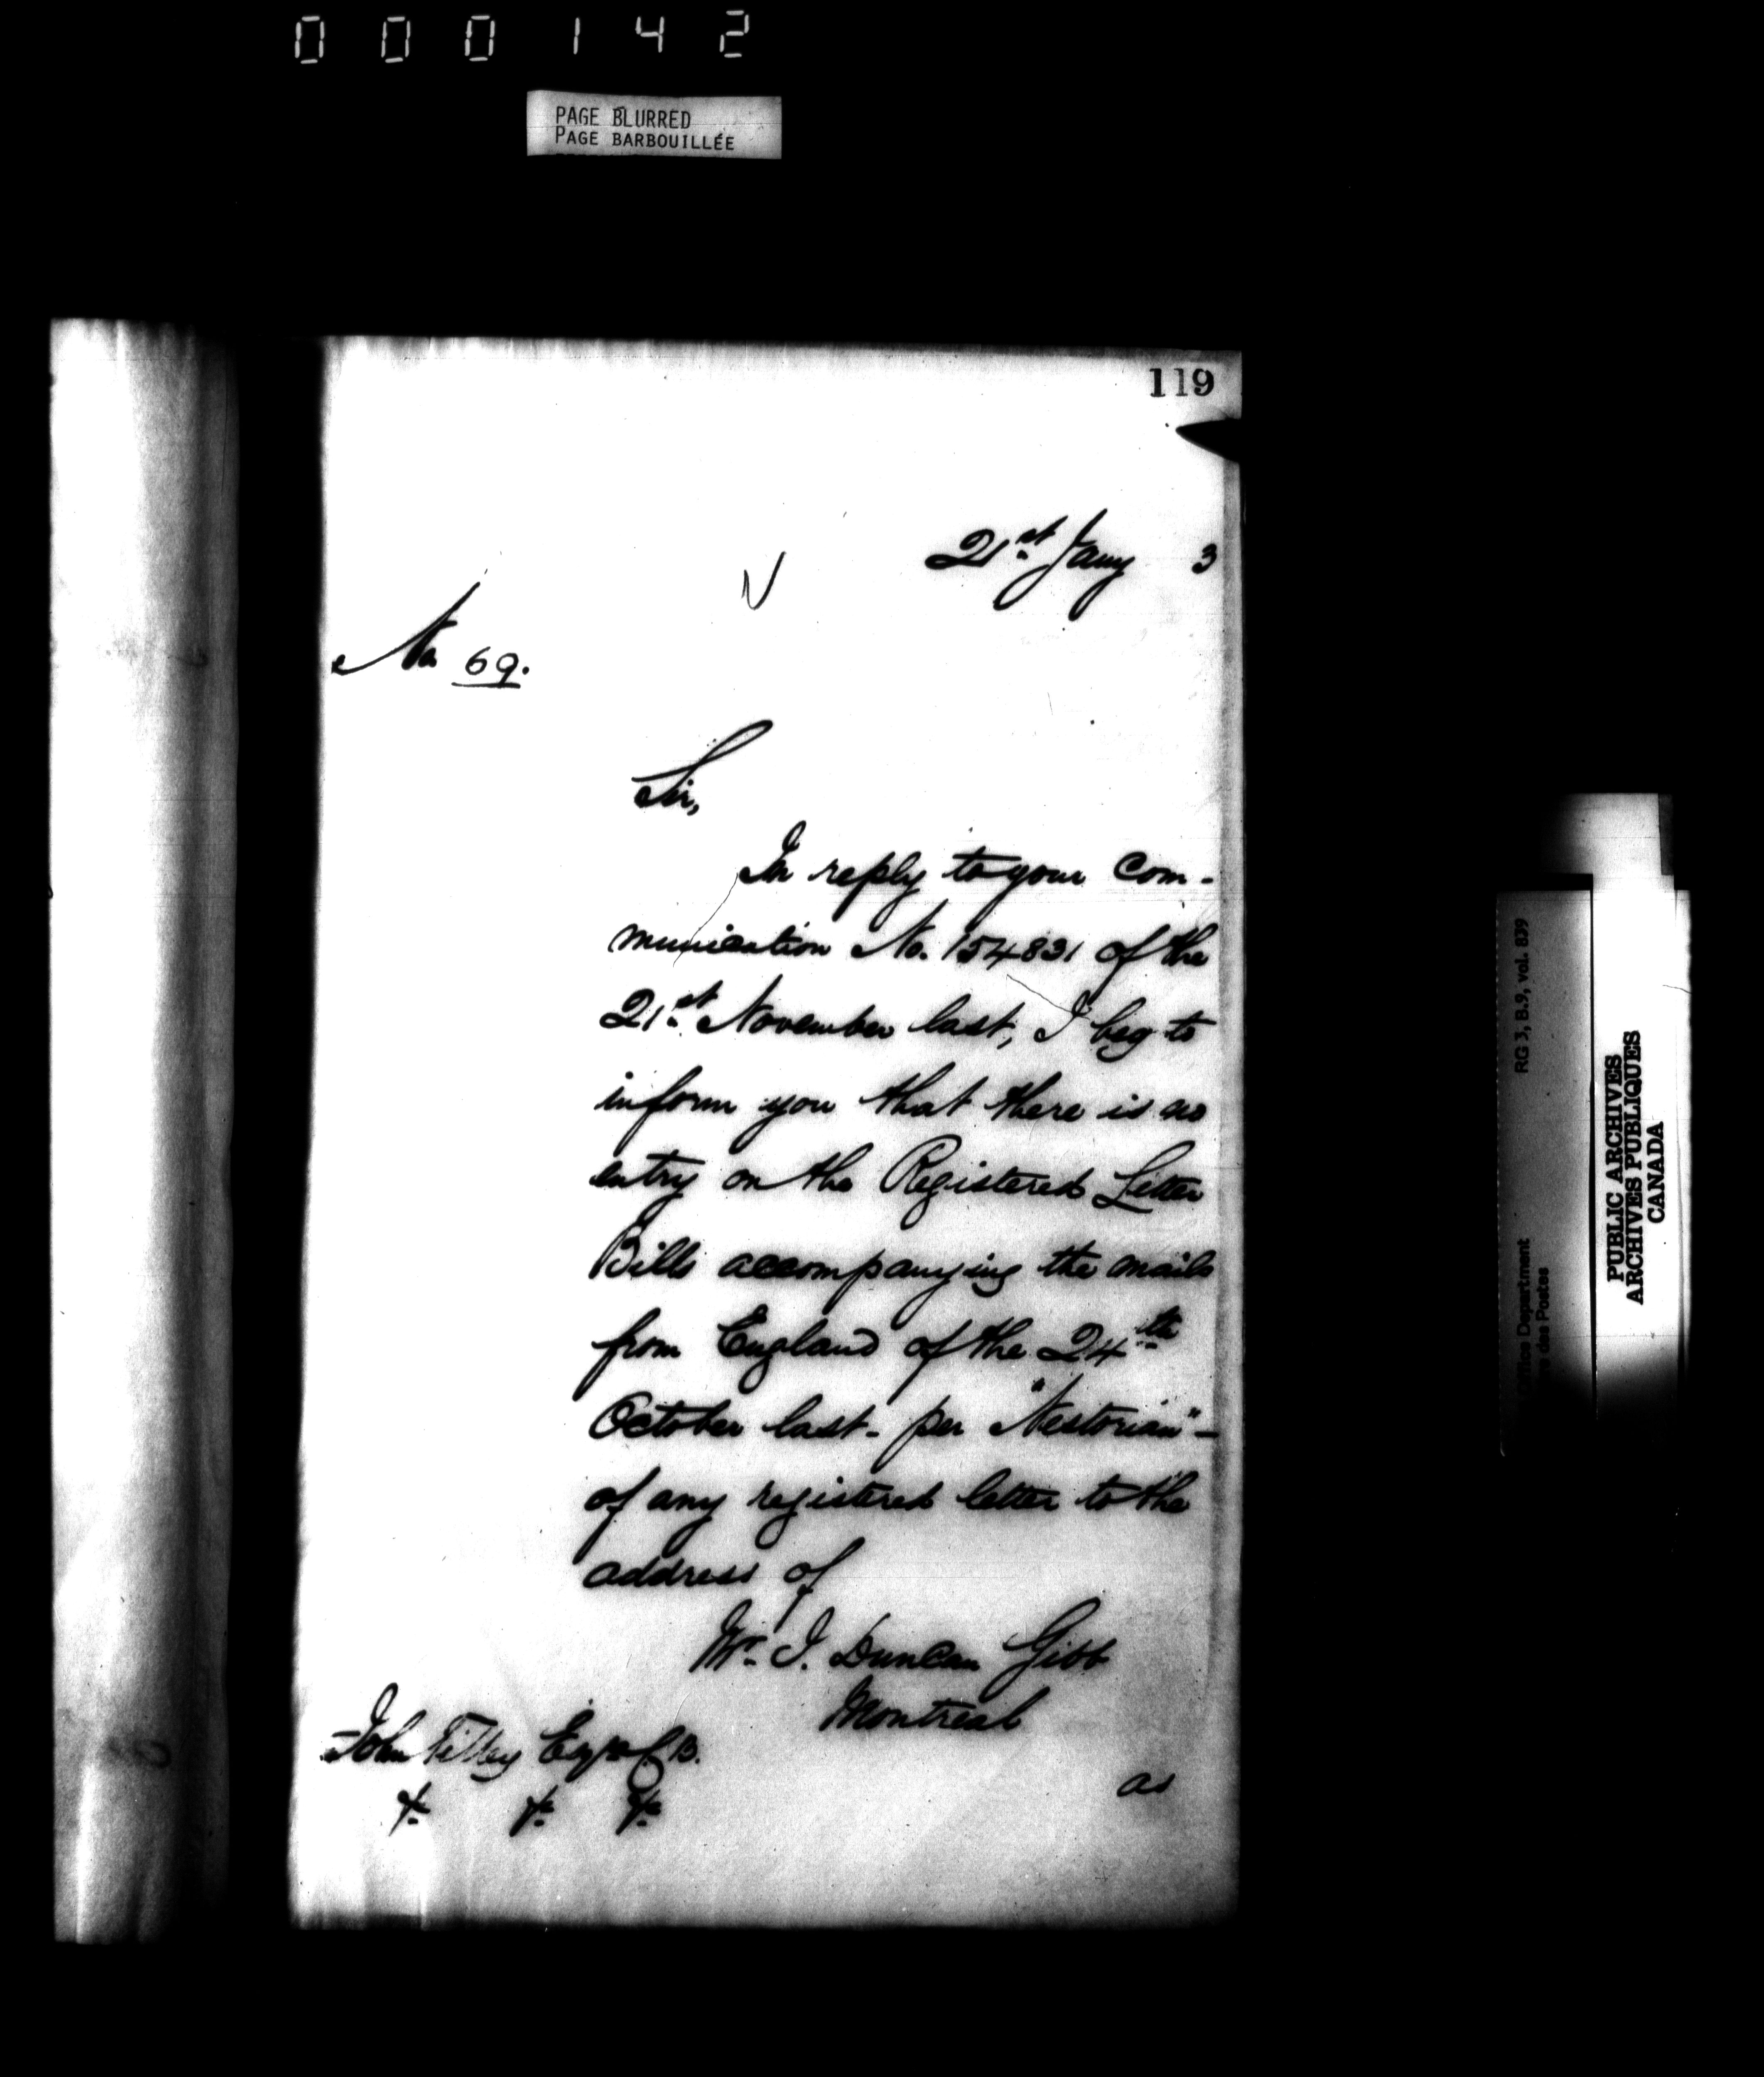 000142
PAGE BLURRED
PAGE BARBOUILLÉE
119
21st Jany 3
No 69.
Sir,
In reply to your Com-
munication No. 154831 of the
21st November last, I beg to
inform you that there is no
entry on the Registered Letter
Bills accompanying the mails
from England of the 24th
October last - per "Nestorian" -
of any registered letter to the
address of
Mr. J. Duncan Gibb
Montreal
John Tilley Esqre C B.
&c &c &c
as
RG 3, B.9, vol. 839
Department
des Postes
PUBLIC ARCHIVES
ARCHIVES PUBLIQUES
CANADA